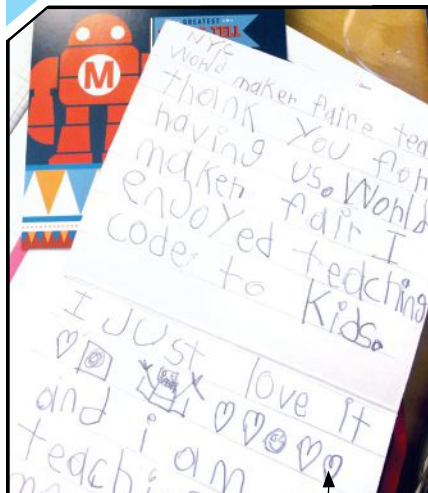 GREATEST
M
NYC
World maker faire tea
thank You for
having us. World
maker fair I
enJoyed teaching
code to Kids.
I JUst love it
and i am
teachi